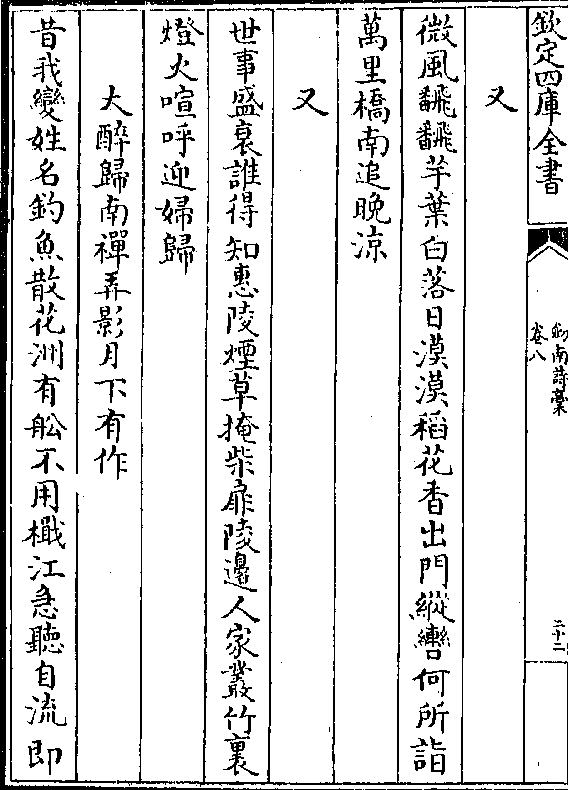 欽定四庫全書
劍南詩稾
卷八
二十二
又
微風飜飜芋葉白落日漠漠稻花香出門縱轡何所詣
萬里橋南追晚涼
又
世事盛衰誰得知惠陵煙草掩柴扉陵邊人家叢竹裏
燈火喧呼迎婦歸
大醉歸南禪弄影月下有作
昔我變姓名釣魚散花洲有舩不用檝江急聽自流即